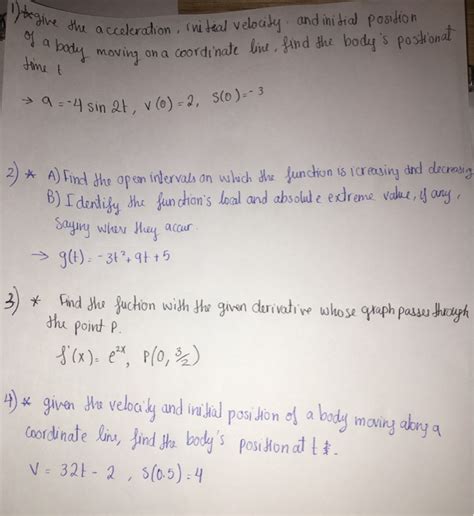 1) give the acceleration, initeal velocity and initial position
of a body moving on a coordinate line, find the body's positional
time t
→ a = -4 sin 2t, v(0) = 2, s(0) = -3
2) * A) Find the open intervals on which the function is icreasing and decreasing
B) Identify the function's local and absolute extreme value, if any,
saying wher they accur.
→ g(t) = -3t² + 9t + 5
3) * Find the fuction with the given derivative whose graph passes through
the point P.
f'(x) = e^{2x}, P(0, 3/2)
4) * given the velocity and initial position of a body moving along a
coordinate line, find the body's position at t
V = 32t - 2, s(0.5) = 4